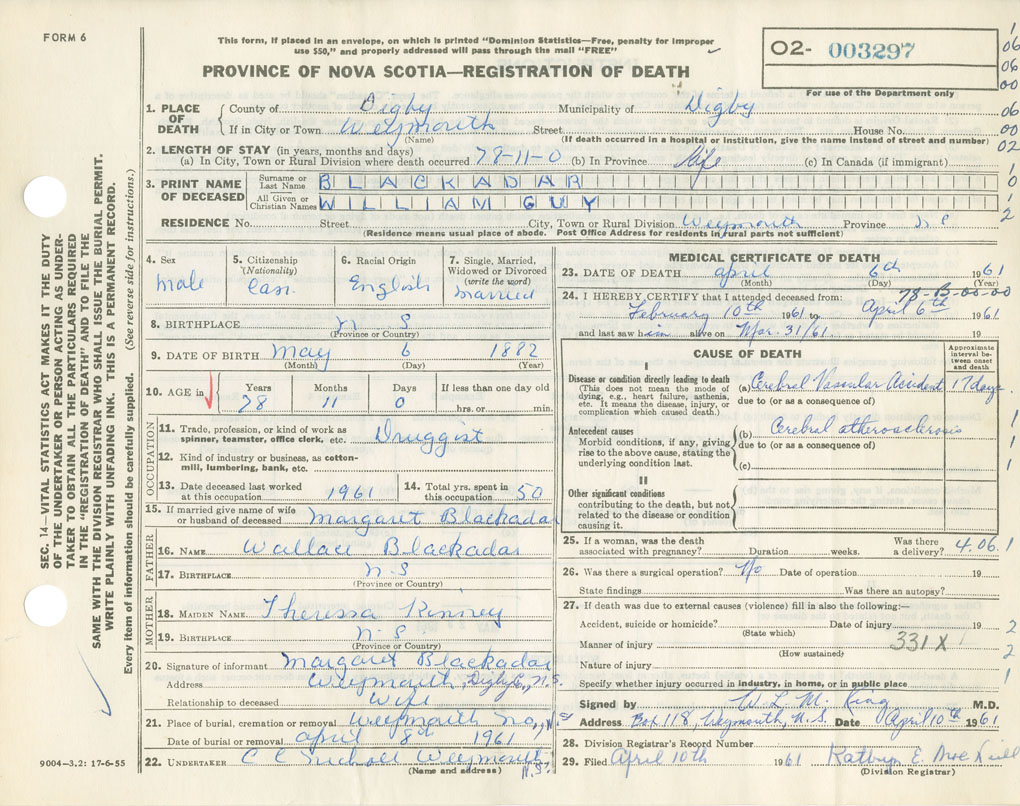 FORM 6
This form, if placed in an envelope, on which is printed "Dominion Statistics—Free, penalty for improper
use $50," and properly addressed will pass through the mail "FREE"
PROVINCE OF NOVA SCOTIA—REGISTRATION OF DEATH
O2- 003297
For use of the Department only
1. PLACE OF DEATH
County of Digby Municipality of Digby
If in City or Town Weymouth Street House No.
(Name) (If death occurred in a hospital or institution, give the name instead of street and number)
2. LENGTH OF STAY (in years, months and days)
(a) In City, Town or Rural Division where death occurred 78-11-0 (b) In Province life (c) In Canada (if immigrant)
3. PRINT NAME OF DECEASED
Surname or Last Name BLACKADAR
All Given or Christian Names WILLIAM GUY
RESIDENCE No. Street City, Town or Rural Division Weymouth Province N S
(Residence means usual place of abode. Post Office Address for residents in rural parts not sufficient)
4. Sex male
5. Citizenship (Nationality) Can.
6. Racial Origin English
7. Single, Married, Widowed or Divorced (write the word) Married
8. BIRTHPLACE N S
(Province or Country)
9. DATE OF BIRTH May 6 1882
(Month) (Day) (Year)
10. AGE in Years Months Days If less than one day old
78 11 0 hrs. or min.
OCCUPATION
11. Trade, profession, or kind of work as spinner, teamster, office clerk, etc. Druggist
12. Kind of industry or business, as cotton-mill, lumbering, bank, etc.
13. Date deceased last worked at this occupation 1961
14. Total yrs. spent in this occupation 50
15. If married give name of wife or husband of deceased Margaret Blackadar
FATHER
16. NAME Wallace Blackadar
17. BIRTHPLACE N.S
(Province or Country)
MOTHER
18. MAIDEN NAME Theressa Kinney
19. BIRTHPLACE N.S
(Province or Country)
20. Signature of informant Margaret Blackadar
Address Weymouth, Digby Co, N.S.
Relationship to deceased Wife
21. Place of burial, cremation or removal Weymouth No, N.S
Date of burial or removal April 8th 1961
22. UNDERTAKER C C Nicholl Weymouth N.S.
(Name and address)
MEDICAL CERTIFICATE OF DEATH
23. DATE OF DEATH April 6th 1961
(Month) (Day) (Year)
78-B-00-00
24. I HEREBY CERTIFY that I attended deceased from:
February 10th 1961 to April 6th 1961
and last saw him alive on Mar. 31/61 19
CAUSE OF DEATH
Approximate interval between onset and death
I
Disease or condition directly leading to death
(This does not mean the mode of dying, e.g., heart failure, asthenia, etc. It means the disease, injury, or complication which caused death.)
(a) Cerebral Vascular Accident 17 days
due to (or as a consequence of)
Antecedent causes
Morbid conditions, if any, giving rise to the above cause, stating the underlying condition last.
(b) Cerebral atherosclerosis
due to (or as a consequence of)
(c)
II
Other significant conditions
contributing to the death, but not related to the disease or condition causing it.
25. If a woman, was the death associated with pregnancy? Duration weeks. Was there a delivery? 4.06.1
26. Was there a surgical operation? No Date of operation 19
State findings Was there an autopsy?
27. If death was due to external causes (violence) fill in also the following:—
Accident, suicide or homicide? Date of injury 19
(State which)
Manner of injury 331 X
(How sustained)
Nature of injury
Specify whether injury occurred in industry, in home, or in public place
Signed by W. L. M. King M.D.
Address Box 118, Weymouth, N.S. Date April 10th 1961
28. Division Registrar's Record Number
29. Filed April 10th 1961 Kathryn E. MacNeill
(Division Registrar)
9004-3.2: 17-6-55
SEC. 14—VITAL STATISTICS ACT MAKES IT THE DUTY
OF THE UNDERTAKER OR PERSON ACTING AS UNDER-
TAKER TO OBTAIN ALL THE PARTICULARS REQUIRED
IN THE "REGISTRATION OF DEATH" AND TO FILE THE
SAME WITH THE DIVISION REGISTRAR WHO SHALL ISSUE THE BURIAL PERMIT.
WRITE PLAINLY WITH UNFADING INK. THIS IS A PERMANENT RECORD.
Every item of information should be carefully supplied. (See reverse side for instructions.)
1
06
06
00
06
00
02
1
0
1
2
1
1
1
2
2
1